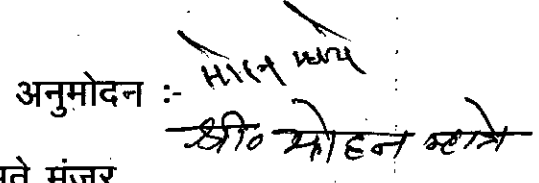 अनुमोदन :- मोहन म्हात्रे
श्री० मोहन म्हात्रे
मते मंजूर